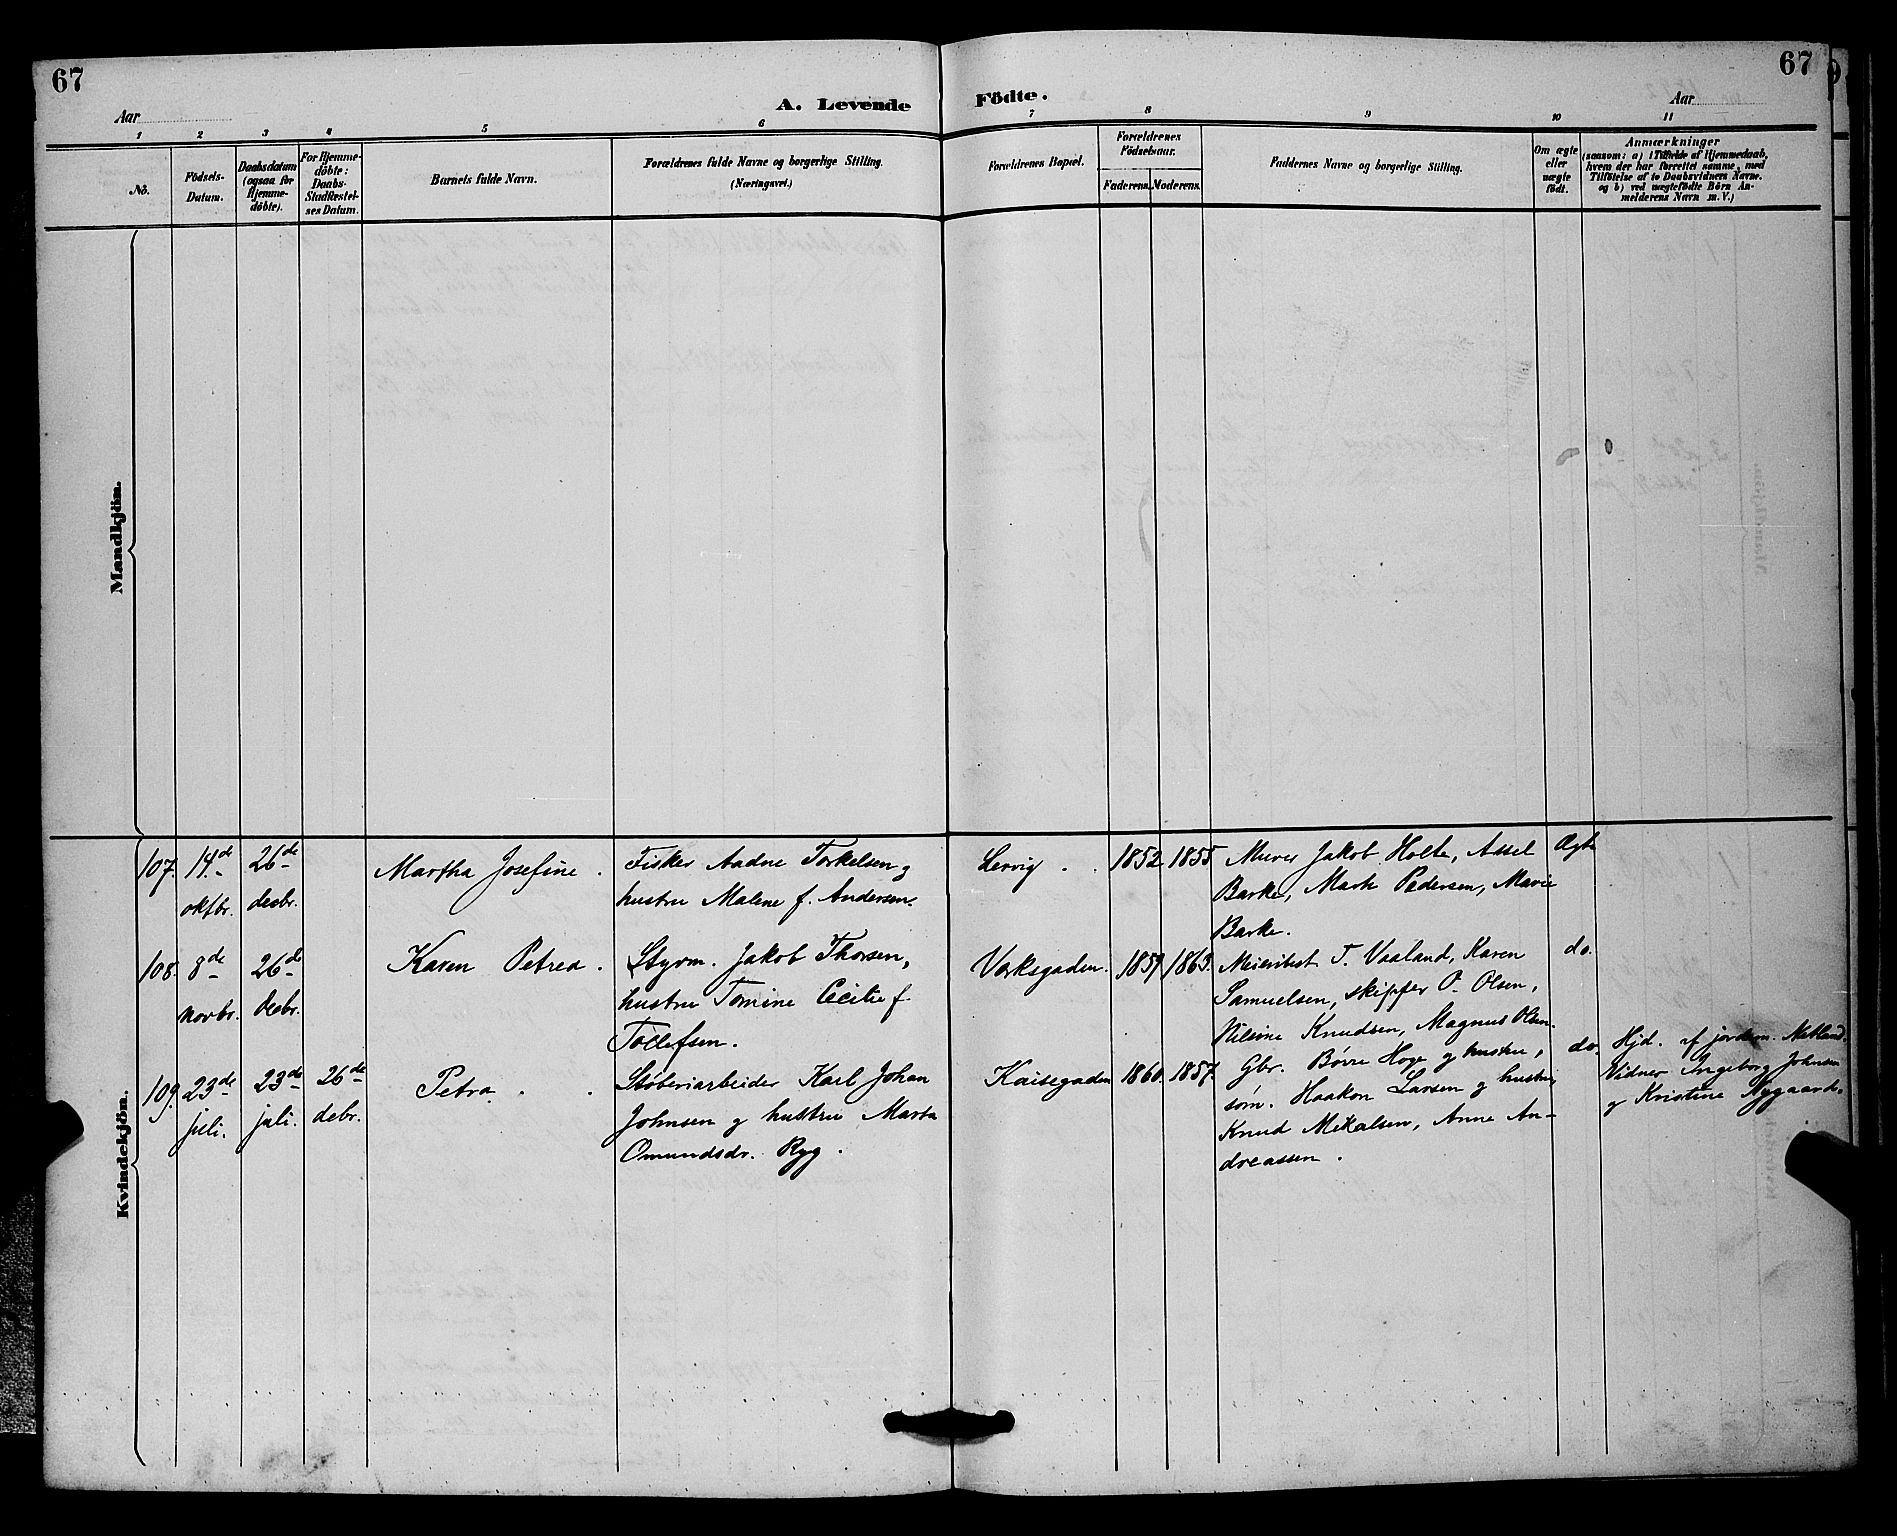 67
67
A. Levende Födte.
Aar
Aar
1 2 3 4 5 6 7 8 9 10 11
No.
Födsels-Datum.
Daabsdatum (ogsaa for Hjemme-döbte).
For Hjemme-döbte: Daabs-Stadfæstelses Datum.
Barnets fulde Navn.
Forældrenes fulde Navne og borgerlige Stilling. (Næringsvei.)
Forældrenes Bopæl.
Forældrenes Födselsaar.
Faderens.
Moderens.
Faddernes Navne og borgerlige Stilling.
Om ægte eller uægte födt.
Anmærkninger
(saasom: a) i Tilfælde af Hjemmedaab,
hvem der har forrettet samme, med
Tilföielse af to Daabsvidners Navne.
og b) ved uægtefödte Börn An-
melderens Navn m. V.)
Mandkjön.
Kvindekjön.
107. 14de oktbr. 26de desbr.
Martha Josefine.
Fisker Aadne Torkelsen g
hustru Malene f. Andersen.
Lervig.
1852 1855.
Murer Jakob Holte, Assel
Barke, Marth Pedersen, Marie
Barke.
Ægte
108. 8de novbr. 26de desbr.
Karen Petrea.
Styrm. Jakob Thorsen,
hustru Tomine Cecilie f.
Tollefsen.
Verksgaden.
1857 1863.
Meieribest. T. Vaaland, Karen
Samuelsen, skipper O. Olsen,
Nilsine Knudsen, Magnus Olsen.
do.
109. 23de juli. 23de juli. 26de debr.
Petra.
Støberiarbeider Karl Johan
Johnsen g hustru Marta
Omundsdr. Ryg.
Kaisegaden
1860 1857.
Gbr. Børre Hoge g hustru,
søm. Haakon Larsen g hustru,
Knud Mikalsen, Anne An-
dreassen.
do.
Hjd. af jordem. Netland.
Vidner Ingeborg Johnsen
g Kristine Nygaard.